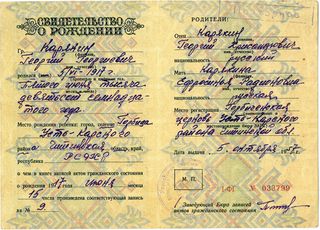 СВИДЕТЕЛЬСТВО
О РОЖДЕНИИ
Гр. Карякин
Георгий Георгиевич
родился 5/VI-1917 г.
Пятого июня тысяча
девятьсот семнадца
того года
Место рождения ребенка: город, селение Горбица
Усть-Карского
район
область, край, Читинская
республика РСФСР
о чем в книге записей актов гражданского состояния
о рождении 1917 года июня месяца
15 числа произведена соответствующая запись
за № 9
РОДИТЕЛИ:
Отец Карякин
Георгий
национальность русский
Мать Карякина
национальность русская
Место регистрации Горбиченская
церковь Усть-Карского
района Читинской обл.
Дата выдачи 5 октября 1957 г.
М. П.
I-ФI № 033799
Заведующий Бюро записей
актов гражданского состояния